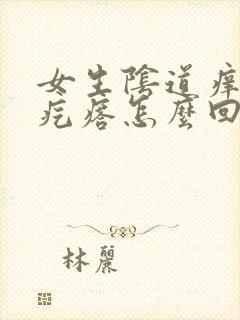 女生陰道痒
疙瘩怎麼回
林麗